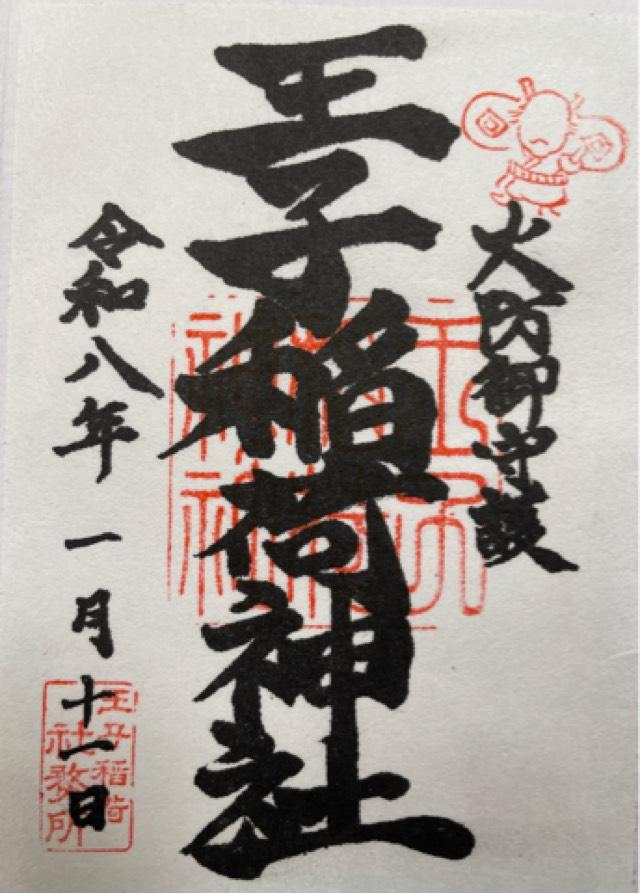 火防御守護
王子稲荷神社
令和八年 一月 十一日
王子稲荷
社務所